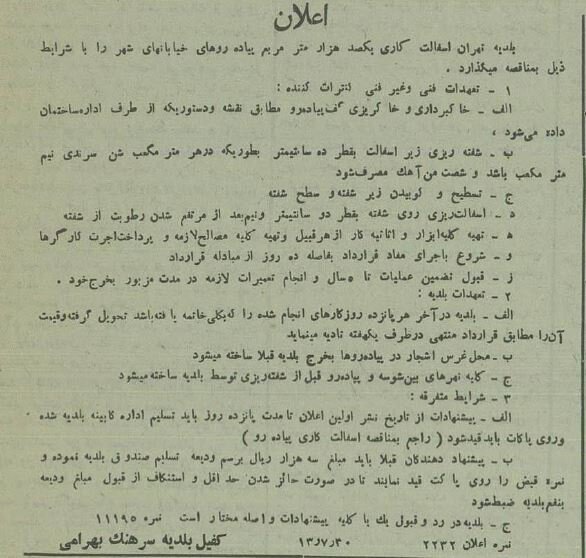 اعلان
بلدیه تهران اسفالت کاری یکصد هزار متر مربع پیاده روهای خیابانهای شهر را با شرایط
ذیل بمناقصه میگذارد .
۱ - تعهدات فنی وغیر فنی کنترات کننده :
الف - خاکبرداری و خاکریزی کف پیاده رو مطابق نقشه ودستوریکه از طرف اداره ساختمان
داده می شود ،
ب - شفته ریزی زیر اسفالت بقطر ده سانتیمتر بطوریکه درهر متر مکعب شن سرندی نیم
متر مکعب باشد و شصت من آهك مصرف شود
ج - تسطیح و کوبیدن زیر شفته و سطح شفته
د - اسفالت ریزی روی شفته بقطر دو سانتیمتر ونیم بعد از مرتفع شدن رطوبت از شفته
ه - تهیه کلیه ابزار و اثاثیه کار از هر قبیل وتهیه کلیه مصالح لازمه و پرداخت اجرت کارگرها
و - شروع باجرای مفاد قرارداد بفاصله ده روز از مبادله قرارداد
ز - قبول تضمین عملیات تا ۵ سال و انجام تعمیرات لازمه در مدت مزبور بخرج خود .
۲ - تعهدات بلدیه :
الف - بلدیه درآخر هر پانزده روز کارهای انجام شده را که بکلی خاتمه یافته باشد تحویل گرفته وقیمت
آن را مطابق قرارداد منتهی درظرف یکهفته تادیه مینماید
ب - محل غرس اشجار در پیاده روها بخرج بلدیه قبلا ساخته میشود
ج - کلیه نهرهای بین شوسه و پیاده رو قبل از شفته ریزی توسط بلدیه ساخته میشود
۳ - شرایط متفرقه :
الف - پیشنهادات از تاریخ نشر اولین اعلان تا مدت پانزده روز باید تسلیم اداره کابینه بلدیه شده
وروی پاکات باید قید شود ( راجع بمناقصه اسفالت کاری پیاده رو )
ب - پیشنهاد دهندگان قبلا باید مبلغ سه هزار ریال برسم ودیعه تسلیم صندوق بلدیه نموده و
نمره قبض را روی پاکت قید نمایند تا در صورت حائز شدن حد اقل و استنکاف از قبول مبلغ ودیعه
بنفع بلدیه ضبط شود
ج - بلدیه در رد و قبول یك یا کلیه پیشنهادات واصله مختار است نمره ۱۱۱۹۵
نمره اعلان ۲۲۳۲ ۱۳ر۷ر۳۰ کفیل بلدیه سرهنك بهرامی